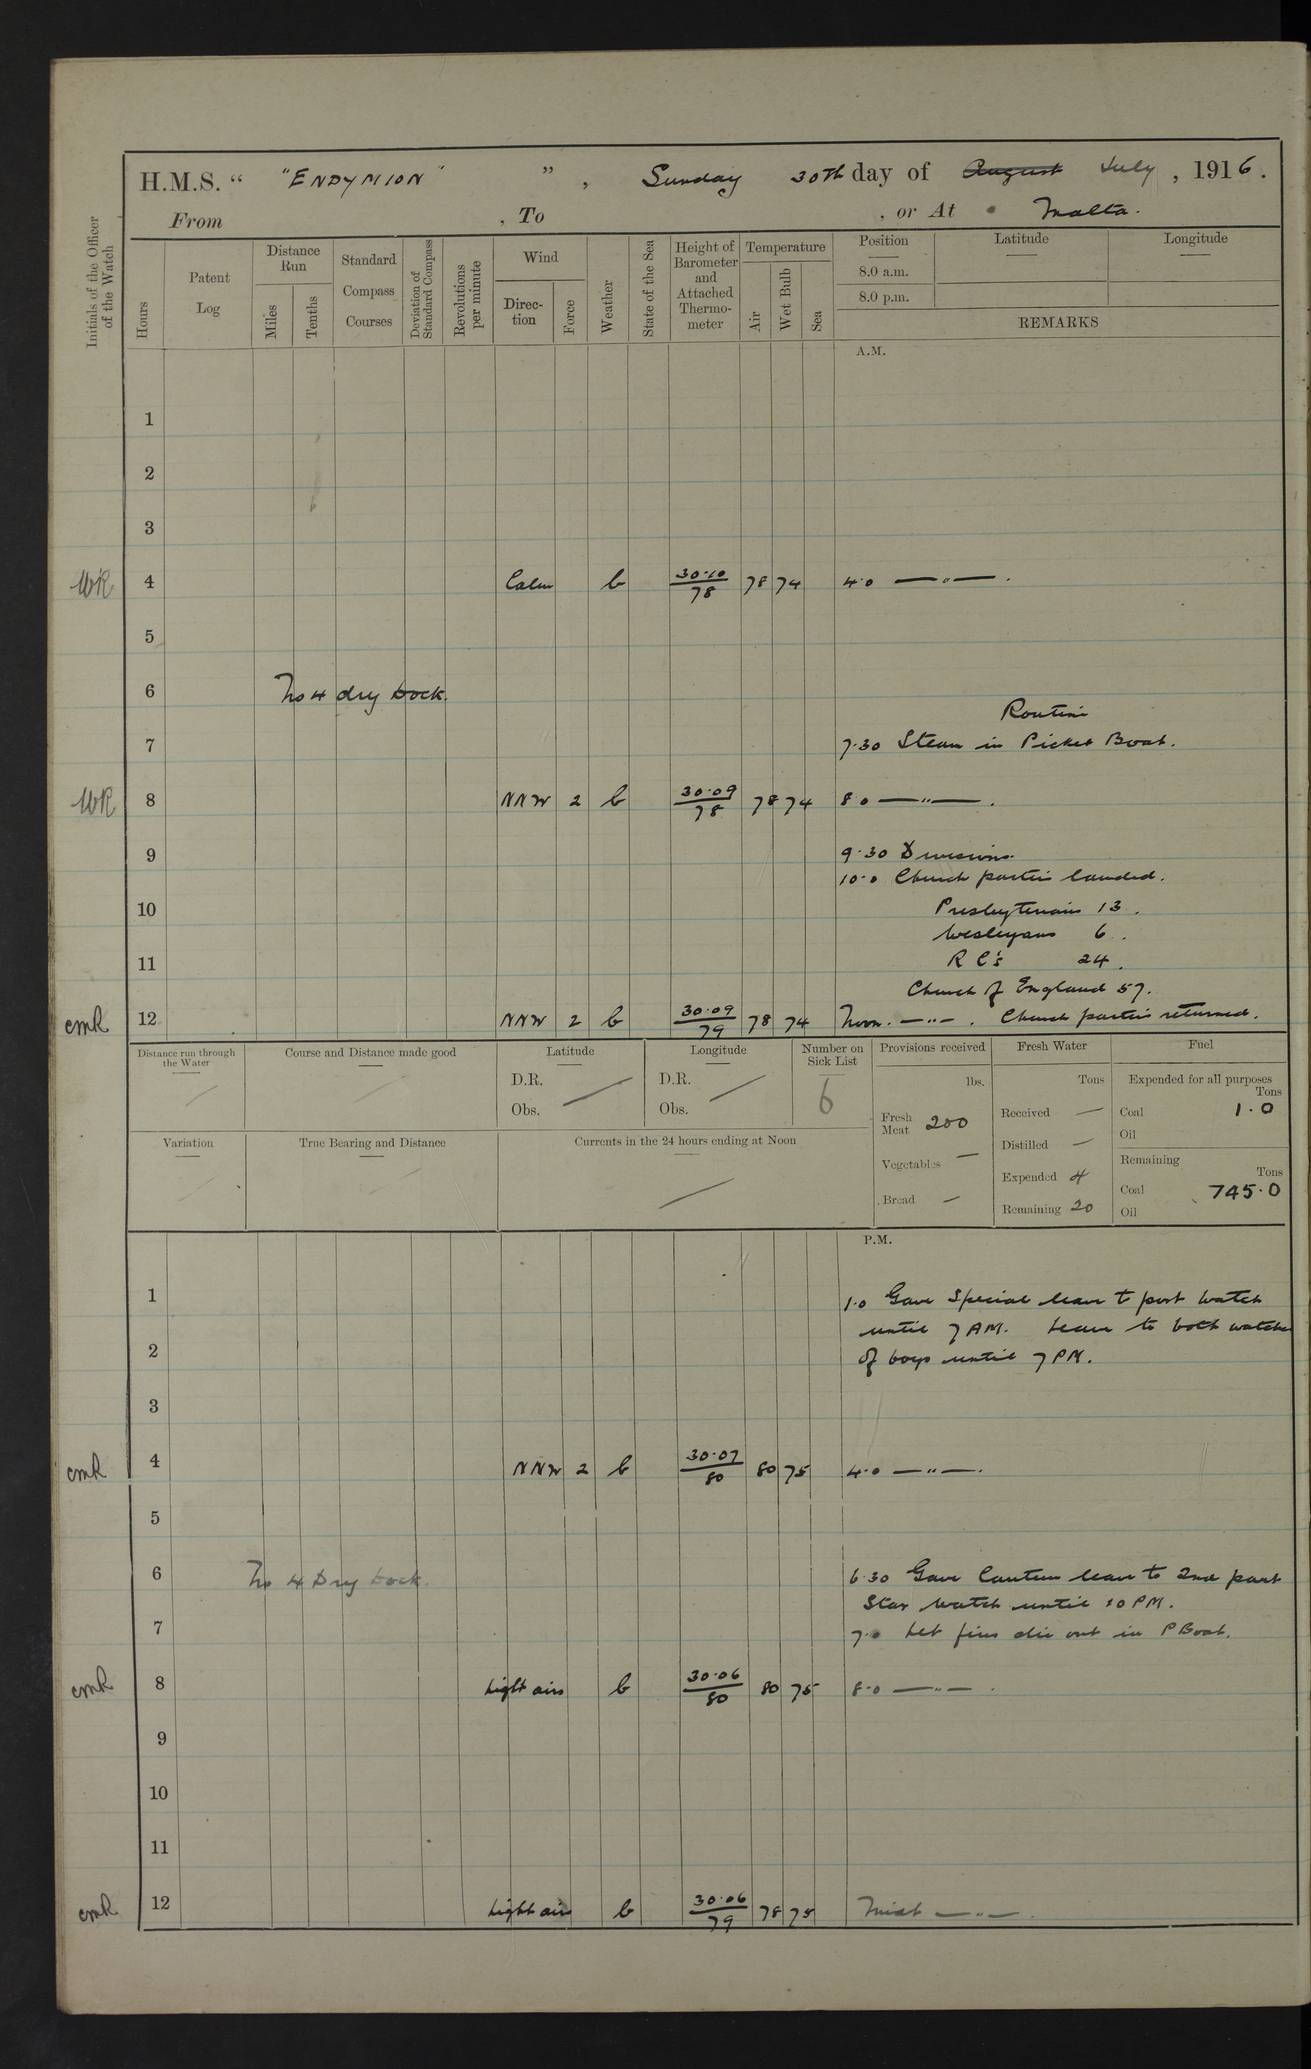 H.M.S. “ "ENDYMION" ”, Sunday 30th day of August July, 1916.
From , To , or At Malta.
Initials of the Officer of the Watch
Hours
Patent Log
Distance Run
Miles
Tenths
Standard Compass Courses
Deviation of Standard Compass
Revolutions per minute
Wind
Direc-tion
Force
Weather
State of the Sea
Height of Barometer and Attached Thermo-meter
Temperature
Air
Wet Bulb
Sea
Position Latitude Longitude
8.0 a.m.
8.0 p.m.
REMARKS
A.M.
1
2
3
WR 4 Calm b 30.10/78 78 74 4.0 —"— .
5
6 No 4 dry Dock.
Routine
7 7.30 Steam in Picket Boat.
WR 8 NNW 2 b 30.09/78 78 74 8.0 —"— .
9 9.30 Divisions.
10.0 Church parties landed.
10 Presbyterians 13.
Wesleyans 6.
11 R C's 24.
Church of England 57.
CMR 12 NNW 2 b 30.09/79 78 74 Noon. —"— . Church parties returned.
Distance run through the Water
Course and Distance made good
Latitude
D.R.
Obs.
Longitude
D.R.
Obs.
Number on Sick List
6
Variation
True Bearing and Distance
Currents in the 24 hours ending at Noon
Provisions received
lbs.
Fresh Meat 200
Vegetables —
Bread —
Fresh Water
Tons
Received —
Distilled —
Expended 4
Remaining 20
Fuel
Expended for all purposes
Tons
Coal 1.0
Oil
Remaining
Tons
Coal 745.0
Oil
P.M.
1 1.0 Gave Special leave to port watch
until 7 AM. Leave to both watches
2 of boys until 7 PM.
3
CMR 4 NNW 2 b 30.07/80 80 75 4.0 —"— .
5
6 No 4 Dry Dock. 6.30 Gave Canteen leave to 2nd part
Star watch until 10 PM.
7 7.0 Let fires die out in P Boat.
CMR 8 Light airs b 30.06/80 80 75 8.0 —"— .
9
10
11
CMR 12 Light airs b 30.06/79 78 75 Midt —"— .